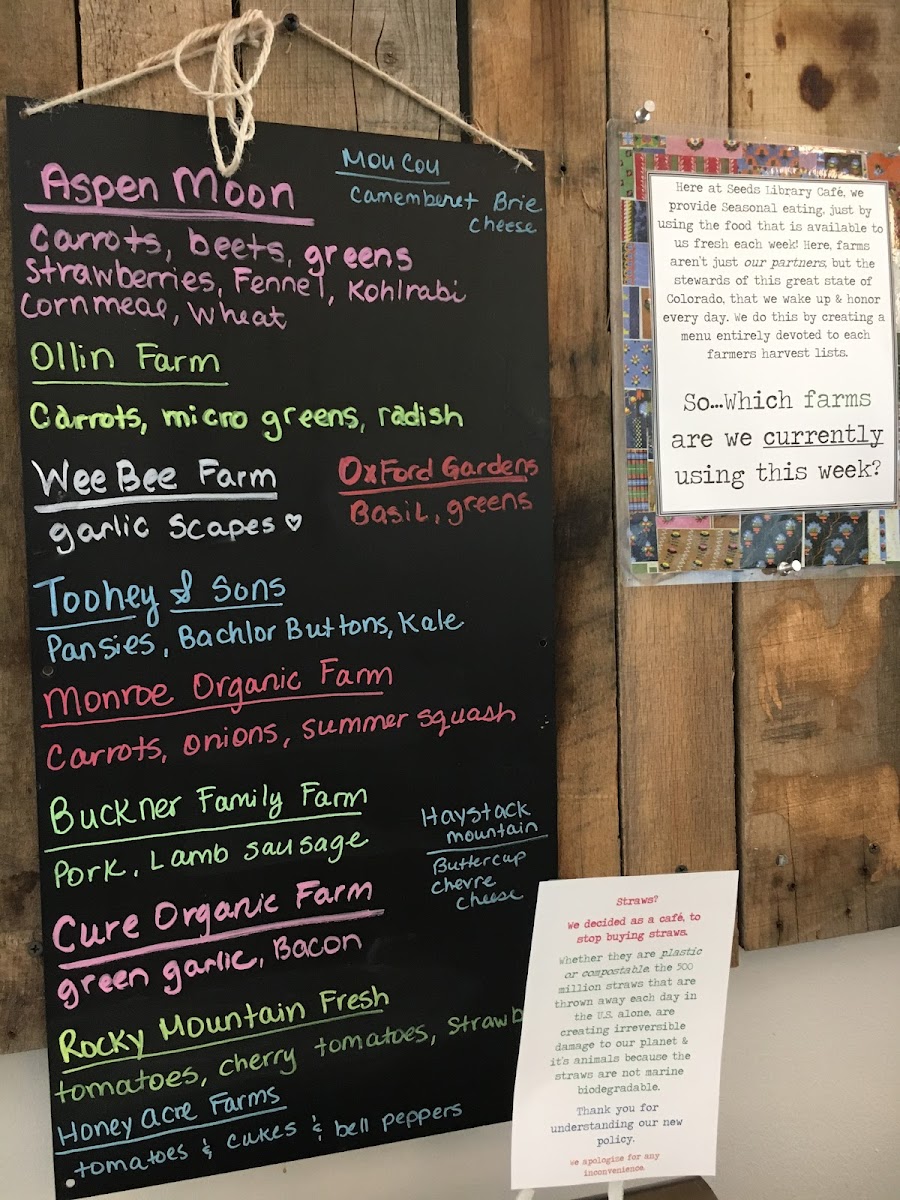 Aspen Moon
Carrots, beets, greens
Strawberries, Fennel, Kohlrabi
Cornmeal, Wheat
Mou Cou
Camemberet Brie
Cheese
Ollin Farm
Carrots, micro greens, radish
Wee Bee Farm
garlic Scapes ♡
Oxford Gardens
Basil, greens
Toohey & Sons
Pansies, Bachlor Buttons, Kale
Monroe Organic Farm
Carrots, onions, summer squash
Buckner Family Farm
Pork, Lamb sausage
Haystack
mountain
Buttercup
chevre
cheese
Cure Organic Farm
green garlic, Bacon
Rocky Mountain Fresh
tomatoes, cherry tomatoes, strawb
Honey Acre Farms
tomatoes & cukes & bell peppers
Here at Seeds Library Café, we
provide Seasonal eating, just by
using the food that is available to
us fresh each week! Here, farms
aren't just our partners, but the
stewards of this great state of
Colorado, that we wake up & honor
every day. We do this by creating a
menu entirely devoted to each
farmers harvest lists.
So...Which farms
are we currently
using this week?
Straws?
We decided as a café, to
stop buying straws.
Whether they are plastic
or compostable, the 500
million straws that are
thrown away each day in
the U.S. alone, are
creating irreversible
damage to our planet &
it's animals because the
straws are not marine
biodegradable.
Thank you for
understanding our new
policy.
We apologize for any
inconvenience.